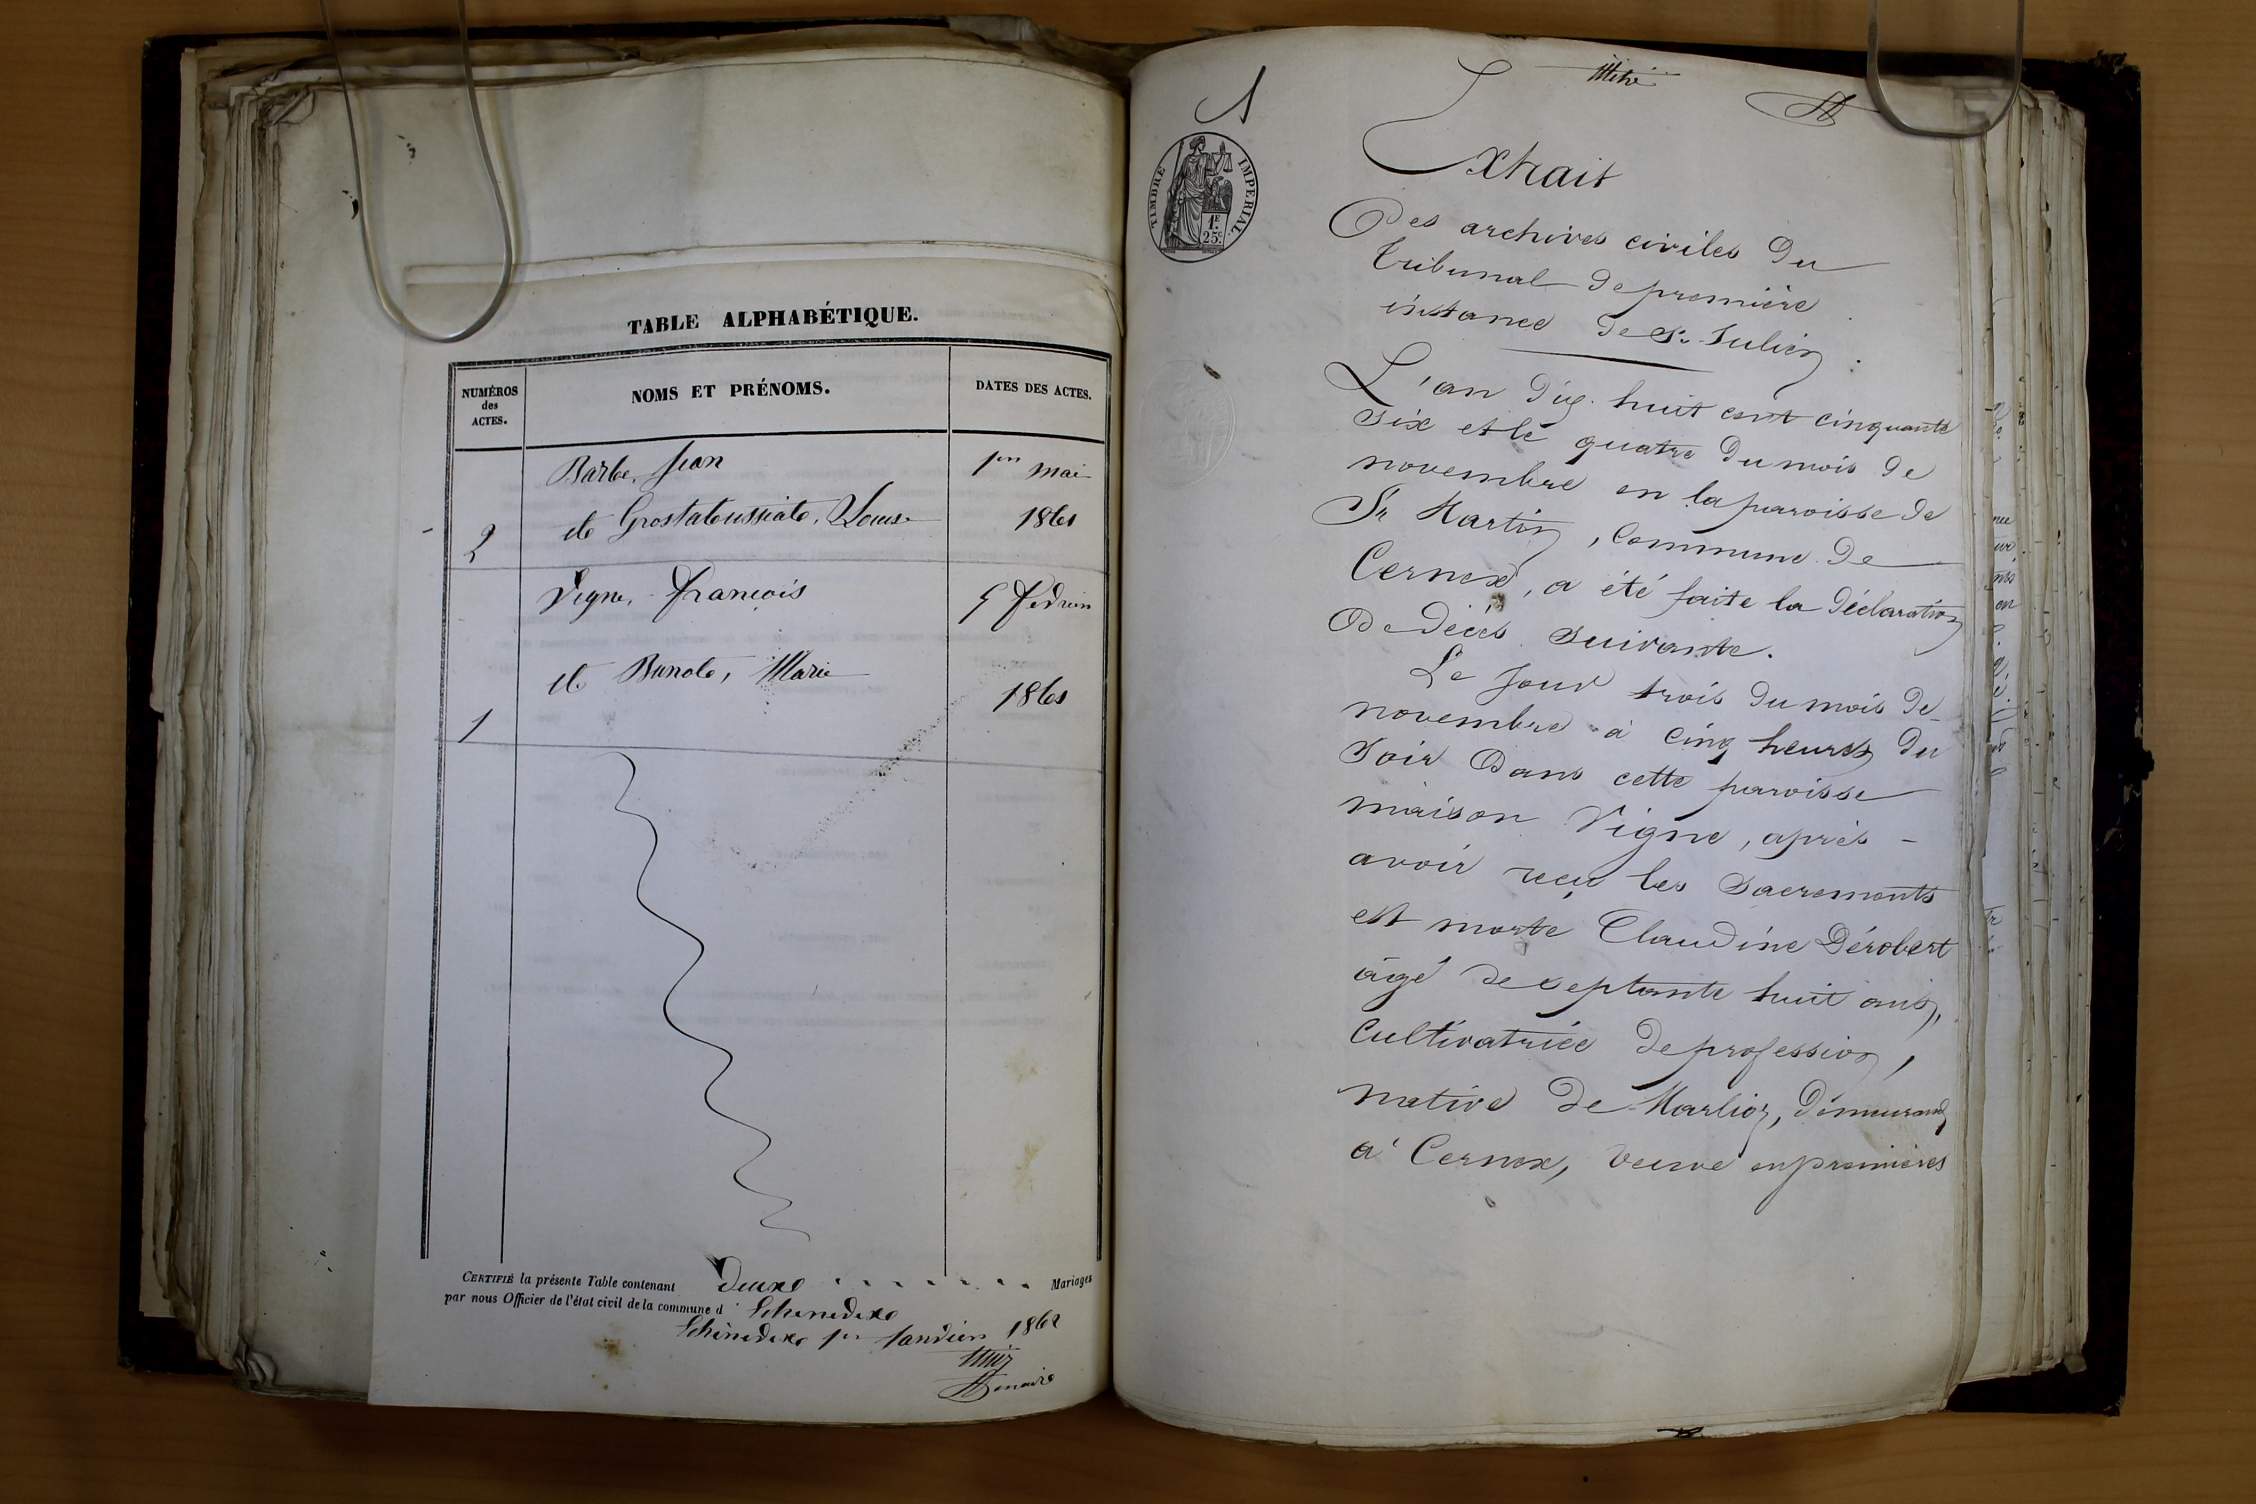 TABLE ALPHABÉTIQUE.
NUMÉROS
des
ACTES.
NOMS ET PRÉNOMS.
DATES DES ACTES.
Barbe, Jean
1er mai
et Grostabussiat, Louise
1861
2
Vigne, François
5 février
et Bunod, Marie
1861
1
CERTIFIÉ la présente Table contenant deux Mariages
par nous Officier de l'état civil de la commune d
1er 1862
maire
1
TIMBRE IMPÉRIAL
1F.
25c.
Extrait
Des archives civiles du
Tribunal de première
instance de St Julien.
L'an dix huit cent cinquante
six et le quatre du mois de
novembre en la paroisse de
St Martin, commune de
Cernex, a été faite la déclaration
De décès suivante.
Le jour trois du mois de
novembre à cinq heures du
soir dans cette paroisse
maison Vigne, après
avoir reçu les sacrements
est morte Claudine Dérobert
âgé de septante huit ans,
cultivatrice de profession,
native de Marlioz, demeurant
à Cernex, veuve en premières